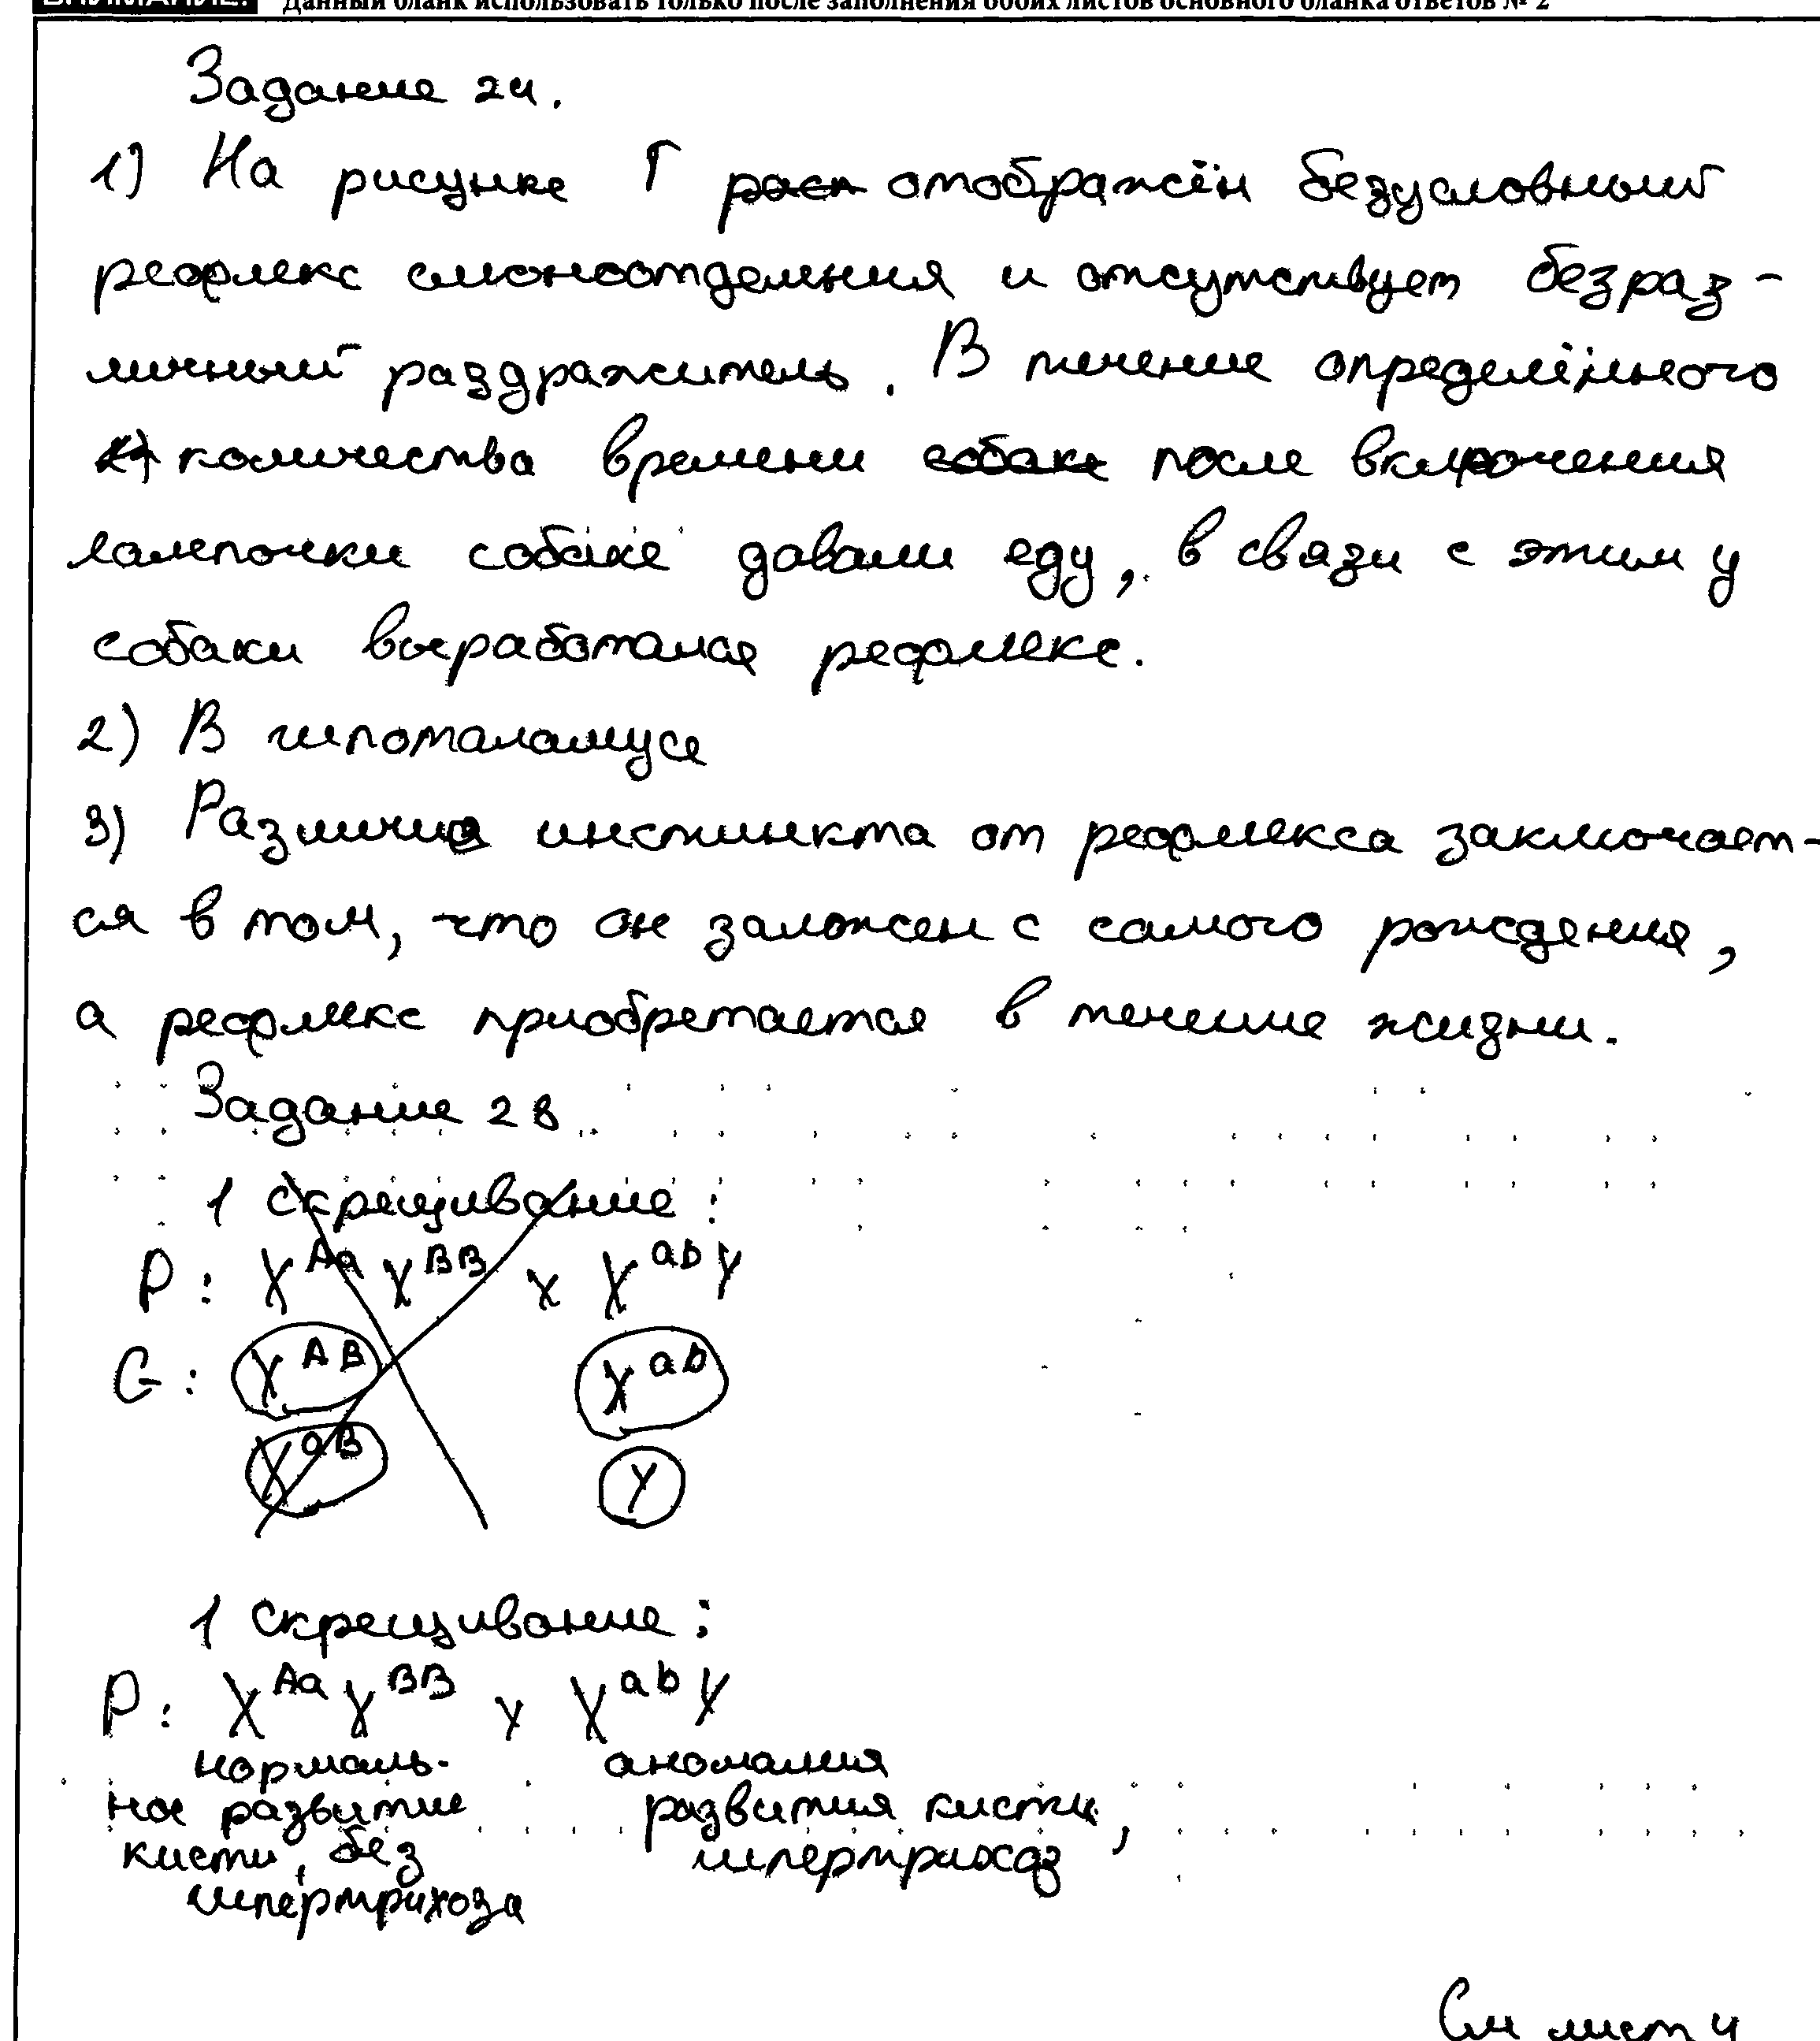 ВНИМАНИЕ! Данный бланк использовать только после заполнения обоих листов основного бланка ответов № 2
Задание 24.
1) На рисунке Г расп отображён безусловный
рефлекс слюноотделения и отсутствует безраз-
личный раздражитель. В течение определённого
2) количества времени собаке после включения
лампочки собаке давали еду, в связи с этим у
собаки выработался рефлекс.
2) В гипоталамусе
3) Различие инстинкта от рефлекса заключает-
ся в том, что он заложен с самого рождения,
а рефлекс приобретается в течение жизни.
Задание 28
1 скрещивание:
P: X^Aa X^BB x X^ab Y
G: X^AB X^ab
X^aB Y
1 скрещивание:
P: X^Aa X^BB x X^ab Y
нормаль- аномалия
ное развитие развития кисти,
кисти, без гипертрихоз
гипертрихоза
См лист 4